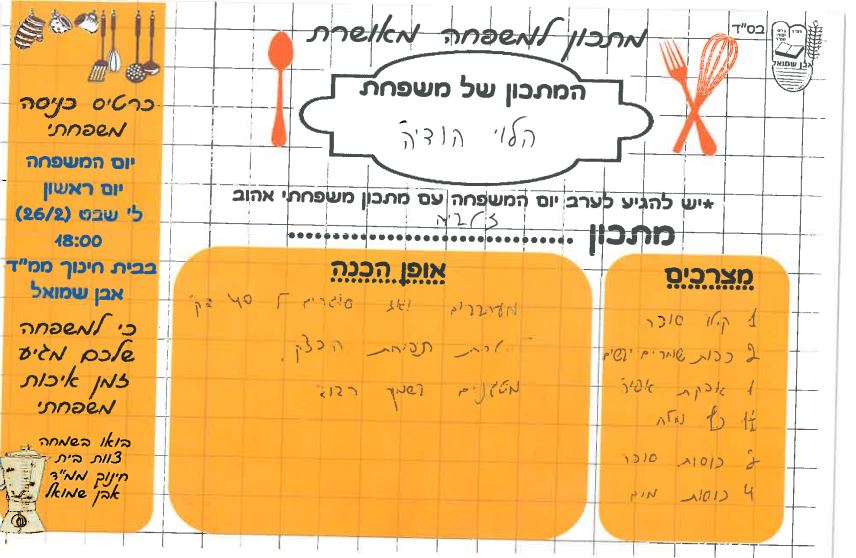 בס"ד
אבן שמואל
מתכון למשפחה מאושרת
המתכון של משפחת
הלוי הודיה
*יש להגיע לערב יום המשפחה עם מתכון משפחתי אהוב
מתכון
זלביה
מצרכים
1 קילו סוכר
2 כפות שמרים יבשים
1 אבקת אפיה
1½ כף מלח
2 כוסות סוכר
4 כוסות מים
אופן הכנה
מערבבים ואז סוגרים ל 45 דק'
תפיחת הבצק.
מטגנים בשמן
כרטיס כניסה
משפחתי
יום המשפחה
יום ראשון
ל' שבט (26/2)
18:00
בבית חינוך ממ"ד
אבן שמואל
כי למשפחה
שלכם מגיע
זמן איכות
משפחתי
בואו בשמחה
צוות בית
חינוך ממ"ד
אבן שמואל